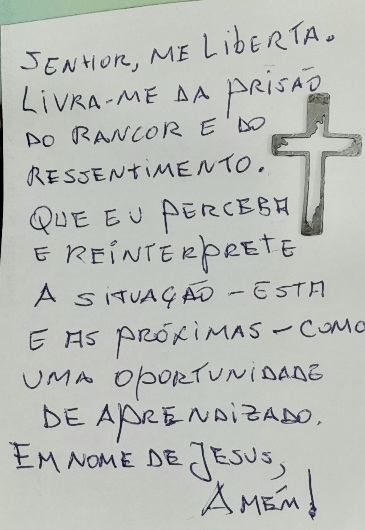 SENHOR, ME LIBERTA.
LIVRA-ME DA PRISÃO
DO RANCOR E DO
RESSENTIMENTO.
QUE EU PERCEBA
E REINTERPRETE
A SITUAÇÃO - ESTA
E AS PRÓXIMAS - COMO
UMA OPORTUNIDADE
DE APRENDIZADO.
EM NOME DE JESUS,
AMÉM!